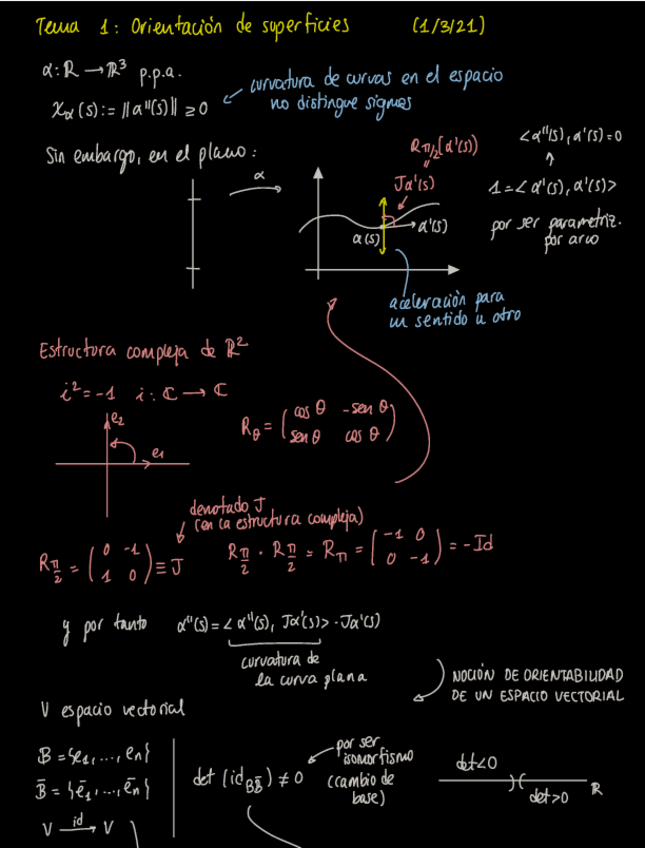 Tema 1: Orientación de superficies (1/3/21)
α: R → R³ p.p.a.
χα(s) := ||α''(s)|| ≥ 0
curvatura de curvas en el espacio
no distingue signos
Sin embargo, en el plano:
α
Rπ/2(α'(s))
"
Jα'(s)
α(s)
α'(s)
<α''(s), α'(s)=0
1=<α'(s), α'(s)>
por ser parametriz.
por arco
aceleración para
un sentido u otro
Estructura compleja de R²
i²=-1 i: C → C
e₂
e₁
Rθ = (cos θ -sen θ
sen θ cos θ)
denotado J
(en la estructura compleja)
Rπ/2 = (0 -1
1 0) ≡ J
Rπ/2 · Rπ/2 = Rπ = (-1 0
0 -1) = -Id
y por tanto α''(s) = <α''(s), Jα'(s)> · Jα'(s)
curvatura de
la curva plana
NOCIÓN DE ORIENTABILIDAD
DE UN ESPACIO VECTORIAL
V espacio vectorial
B = {e₁, ..., eₙ}
B̄ = {ē₁, ..., ēₙ}
V id→ V
det (id_BB̄) ≠ 0
por ser
isomorfismo
(cambio de
base)
det<0
)(
det>0
R